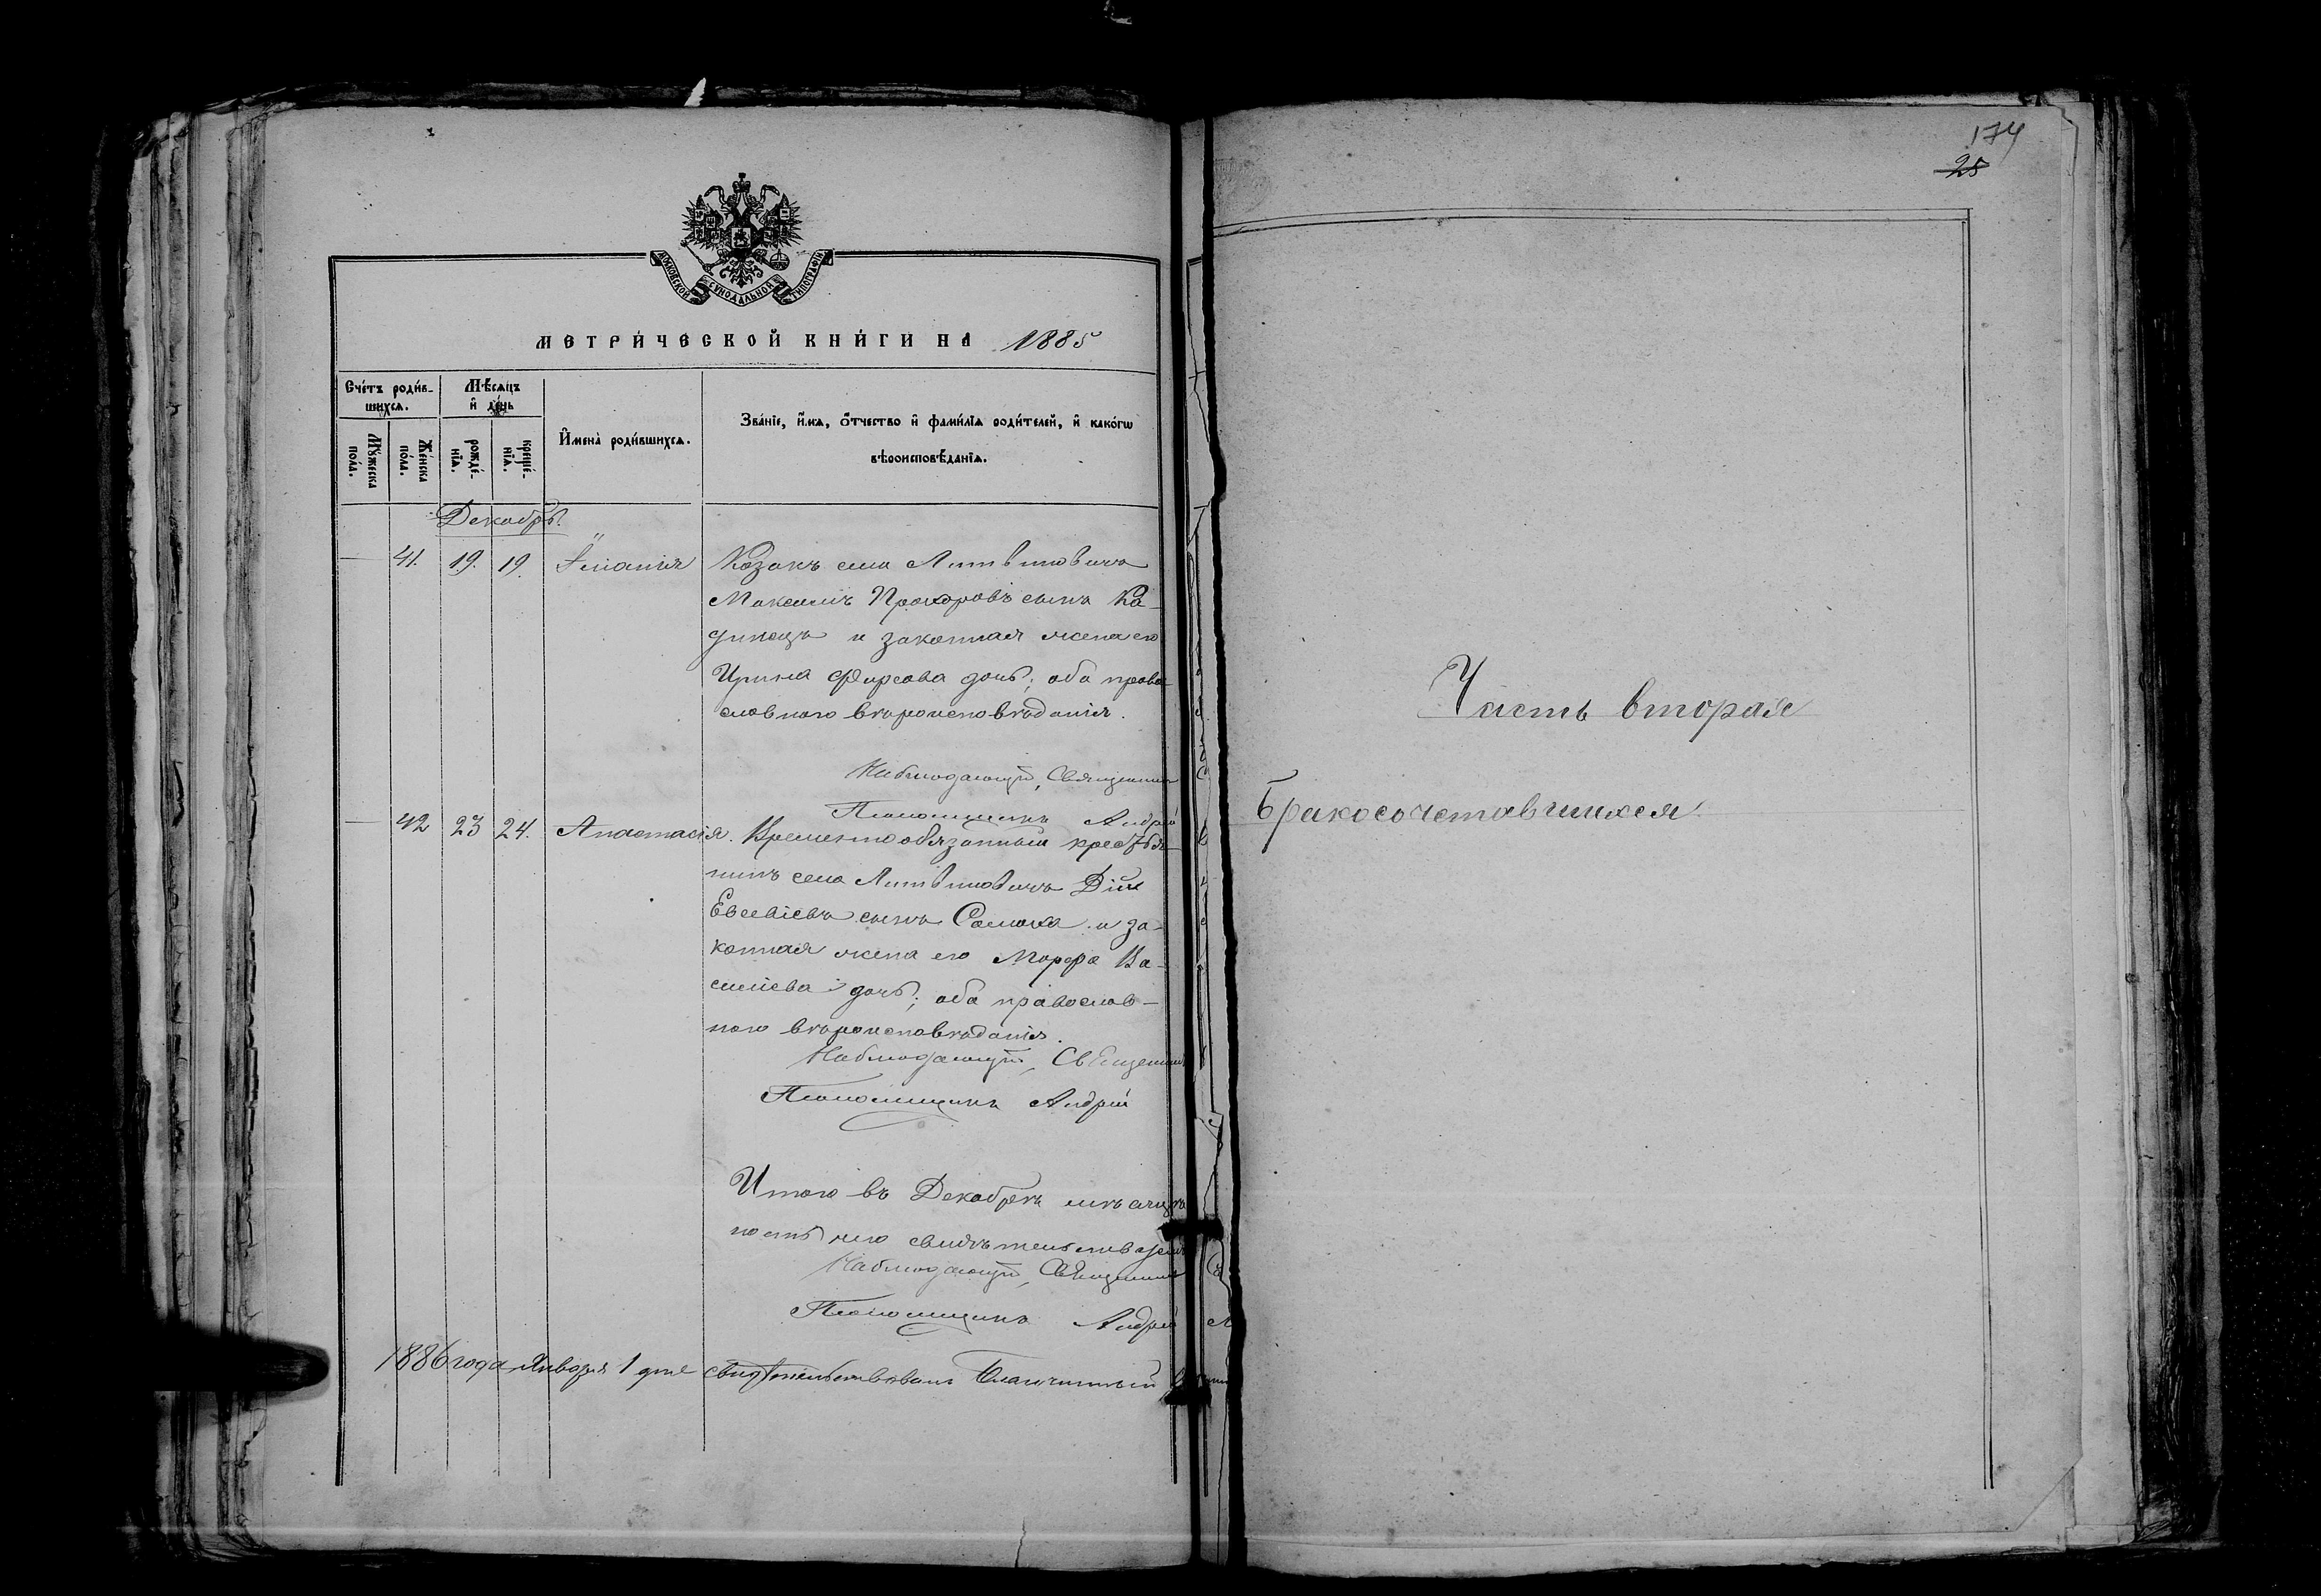 174
28
МОСКОВСКОЙ СѴНОДАЛЬНОЙ ТИПОГРАФІИ
МЕТРИ́ЧЕСКОЙ КНИ́ГИ НА 1885
Сче́тъ роди́вшихсѧ.
Мꙋ́жеска по́ла.
Же́нска по́ла.
Мѣ́сѧцъ и҆ де́нь
рожде́нїѧ.
креще́нїѧ.
И҆мена̀ роди́вшихсѧ.
Зва́нїе, и҆́мѧ, ѻ҆́тчество и҆ фами́лїѧ роди́телей, и҆ како́гѡ
вѣроисповѣ́данїѧ.
Декабрь.
— 41. 19. 19.
Козакъ села Литвиновичъ
Максимъ Прохоровъ сынъ Ка-
динецъ и законная жена его
Ирина Фирсова дочь; оба право
славного вѣроисповѣданія.
Наблюдающій, Священникъ
Андрій
— 42 23 24. Анастасія. Временнообязанный кресtья-
нинъ села Литвиновичъ
Евсевіевъ сынъ Самоха и за-
конная жена его Марфа Ва-
силіева дочь; оба православ-
ного вѣроисповѣданія.
Наблюдающій, Священникъ
Андрій
Итого въ Декабрѣ мѣсяцѣ
Наблюдающій, Священникъ
Андрій
1886 года Января 1 дня свидѣтельствовалъ Благочинный
Часть вторая
Бракосочетавшихся